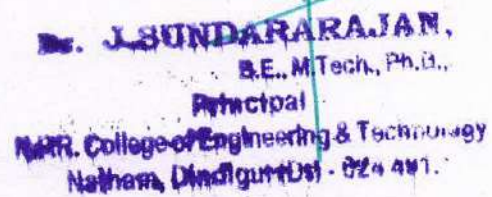 Dr. J.SUNDARARAJAN,
B.E., M.Tech., Ph.D.,
Principal
College of Engineering & Technology
Natham, Dindigul (Dt) - 624 401.